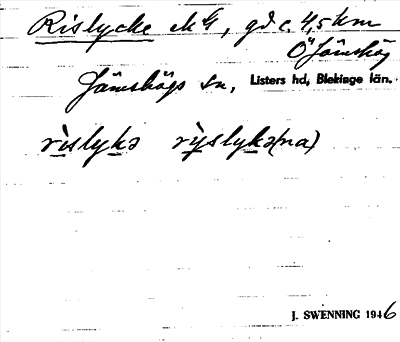 Rislycke ek G, gd c. 4,5 km
Ö Jämshög
Jämshögs sn, Listers hd, Blekinge län.
rìslykə rìyslykə(na)
J. SWENNING 1946